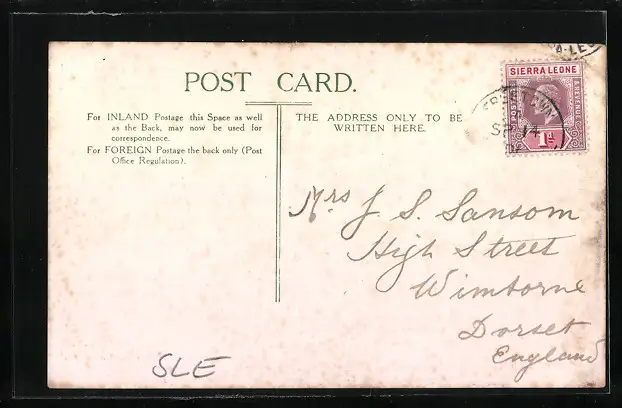 POST CARD.
For INLAND Postage this Space as well
as the Back, may now be used for
correspondence.
For FOREIGN Postage the back only (Post
Office Regulation).
THE ADDRESS ONLY TO BE
WRITTEN HERE.
SIERRA LEONE
POSTAGE
REVENUE
1d
SP 14
Mrs J. S. Sansom
High Street
Wimborne
Dorset
England
SLE